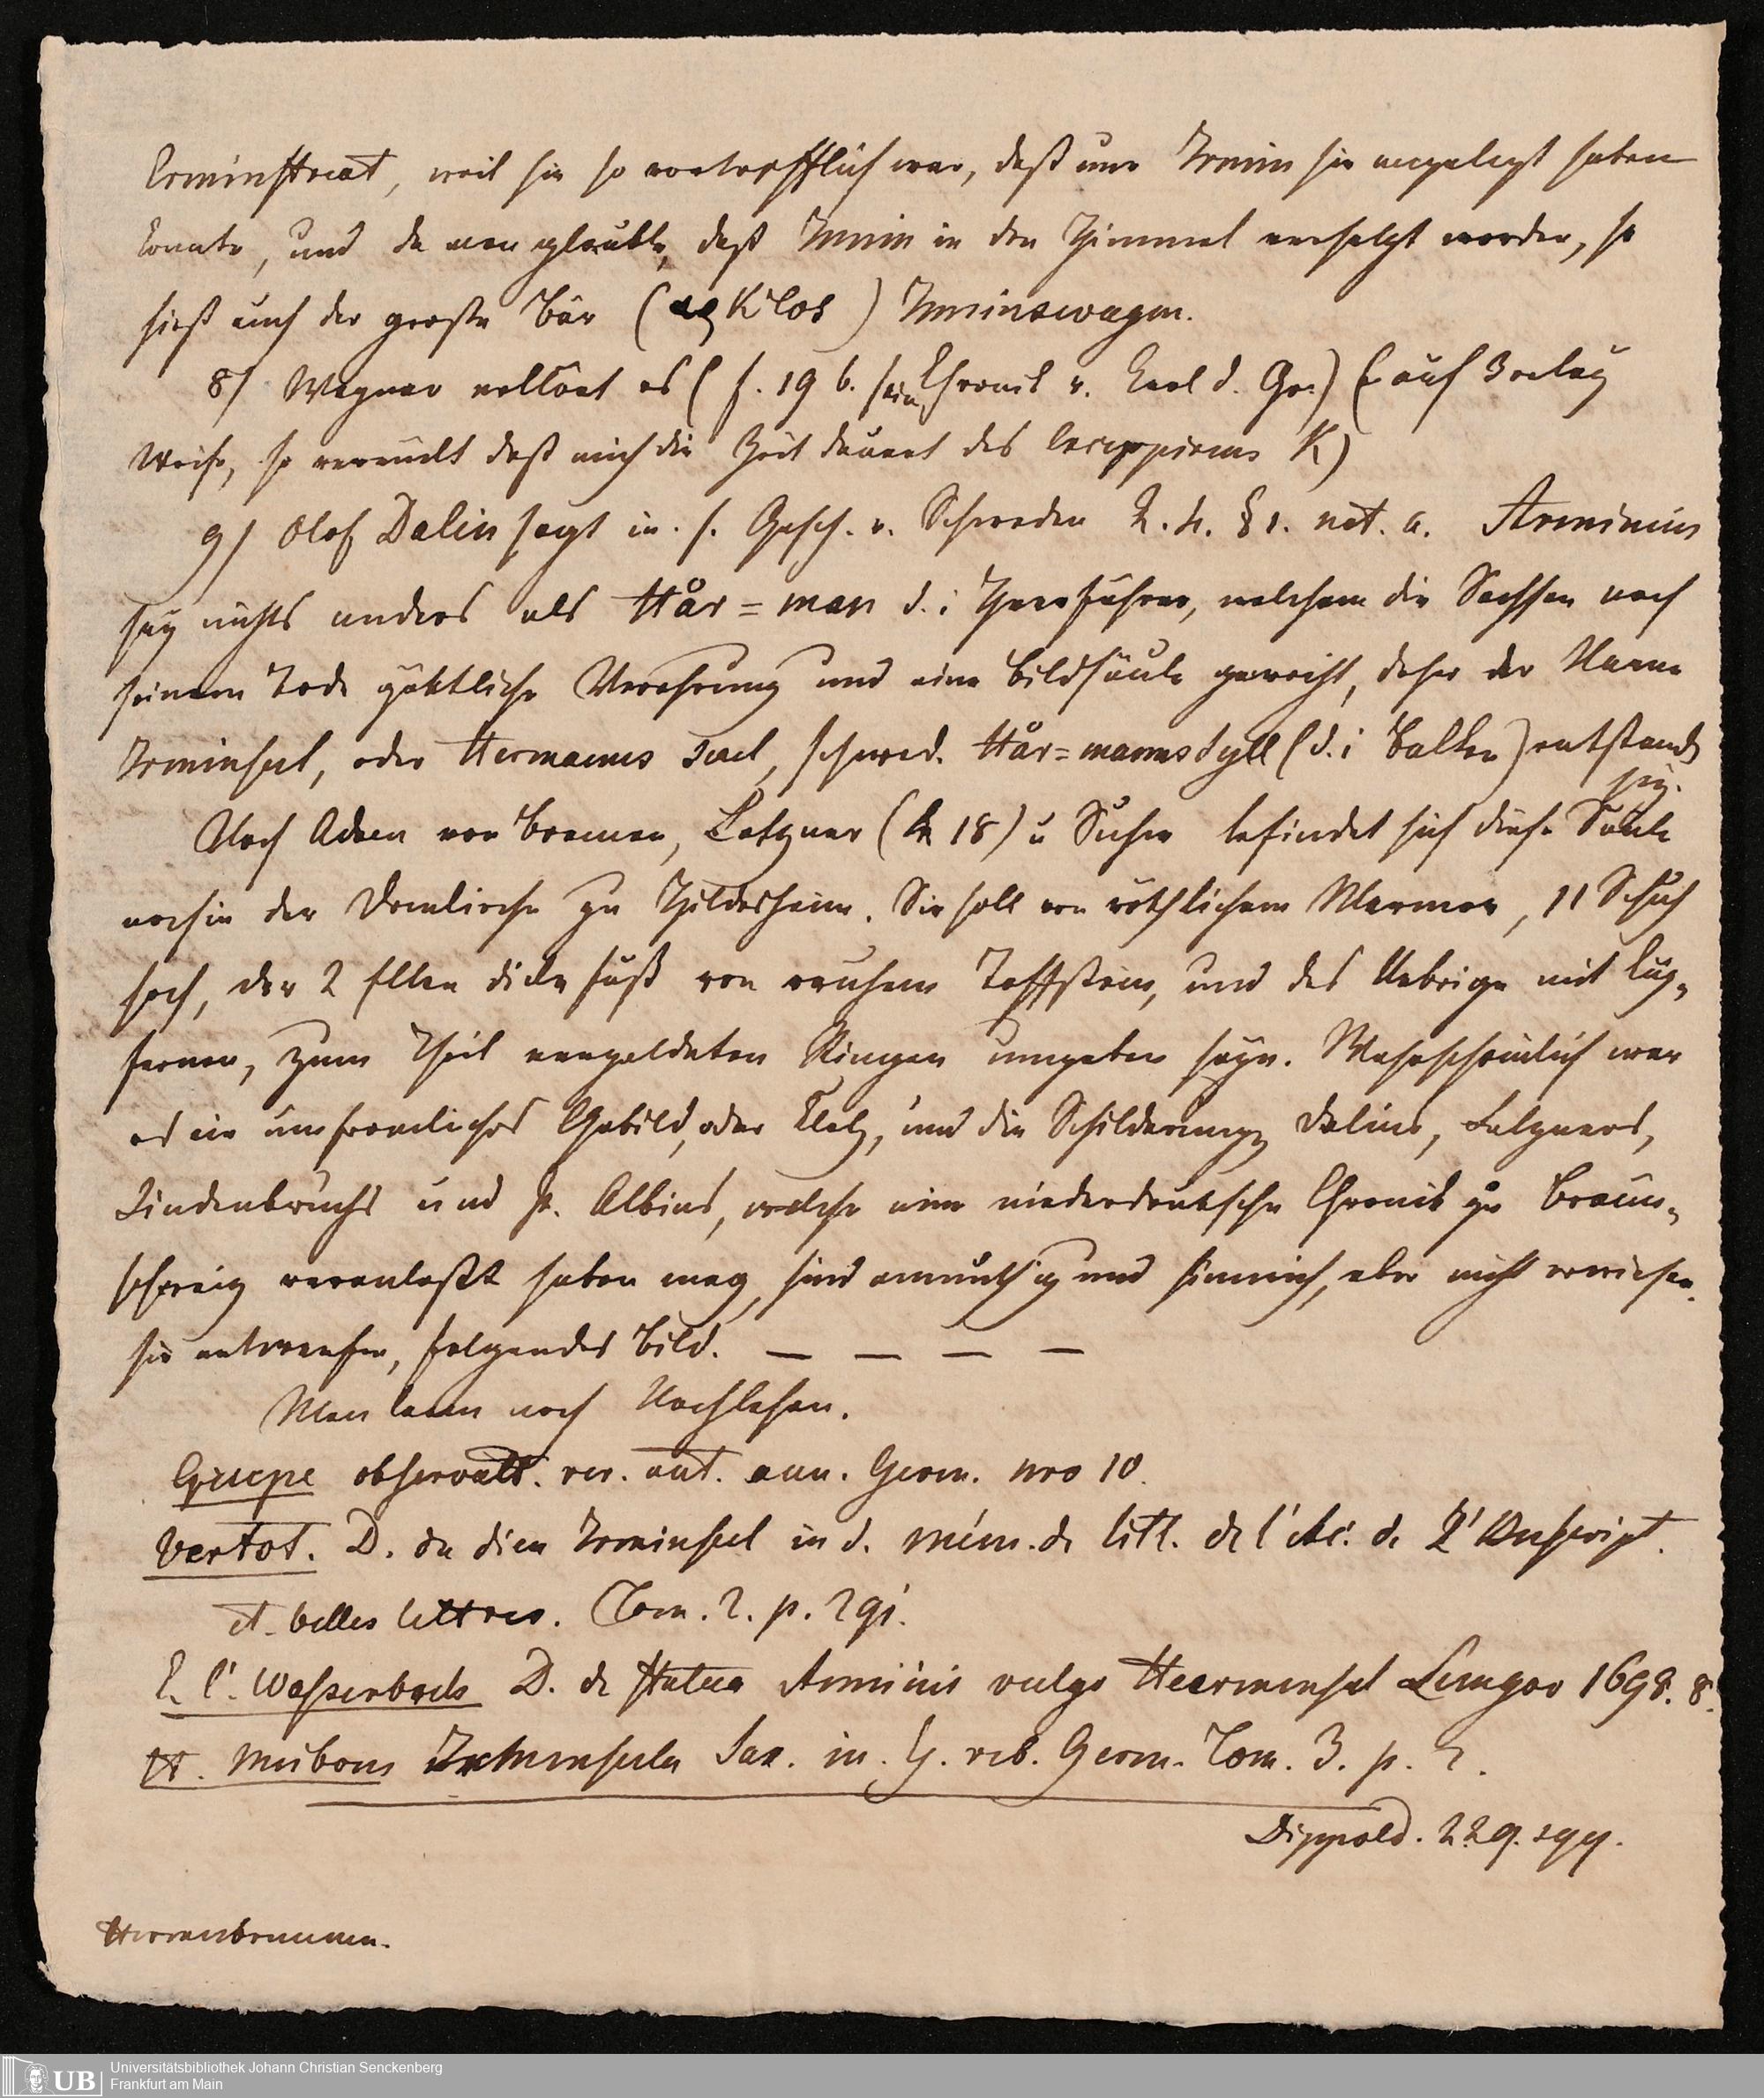 Erminstreat, weil sie so vortrefflich war, daß nur Irmin sie angelegt haben
konnte, und da man glaubte, daß Irmin in den Himmel versetzt worden, so
hieß auch der große Bär ( ) Irminswagen.
8/ Wagner erklärt es ( s. 19 b. sein Chronik v. Karl d. Gr.) (auf
Weise, so verrückt daß mich die Zeit dauert des K)
9/ Olof Dalin sagt in s. Gesch. v. Schweden 2. h. § 1. not. a. Arminius
sey nichts anders als Hår=man d. i Heerführer, welchem die Sachsen nach
seinem Tode göttliche Verehrung und eine Bildsäule geweiht, daher der Name
Irminsul, oder Hermanns Seul, schwed. Hår=mannsSyll (d. i Balken) entstanden
sey.
Nach Adam von Bremen, Letzner (K 18) u befindet sich diese Säule
noch in der Domkirche zu Hildesheim. Sie soll von röthlichem Marmor, 11 Schuh
hoch, der 2 Ellen dicke Fuß von rauhem Toffstein, und das Uebrige mit kup-
fernen, zum Theil vergoldeten Ringen umgeben seyn. Wahrscheinlich war
es ein unförmliches Gebild, oder Klotz, und die Schilderungen Dalins, Letzners,
Lindenbruchs und P. Albins, welche eine niederdeutsche Chronik zu Braun-
schweig veranlaßt haben mag, sind anmuthig und sinnreich, aber nicht erwiesen.
sie entwerfen, folgendes Bild. — — — —
Man kann noch Nachlesen.
Grupe observatt. rer. ant. Germ. nro 10.
Vertot. D. Irminsul in d. mém. de litt. de l' Ac. de l' Inscript.
et belles lettres. Tom. 2. p. 291.
E. C. Wasserbach D. de statua Arminii vulgo Heermensul Lemgov 1698. 8.
H. Meibom Irmensula Sax. in S. rer. Germ. Tom. 3. p. 2.
Dippold. 229. sqq.